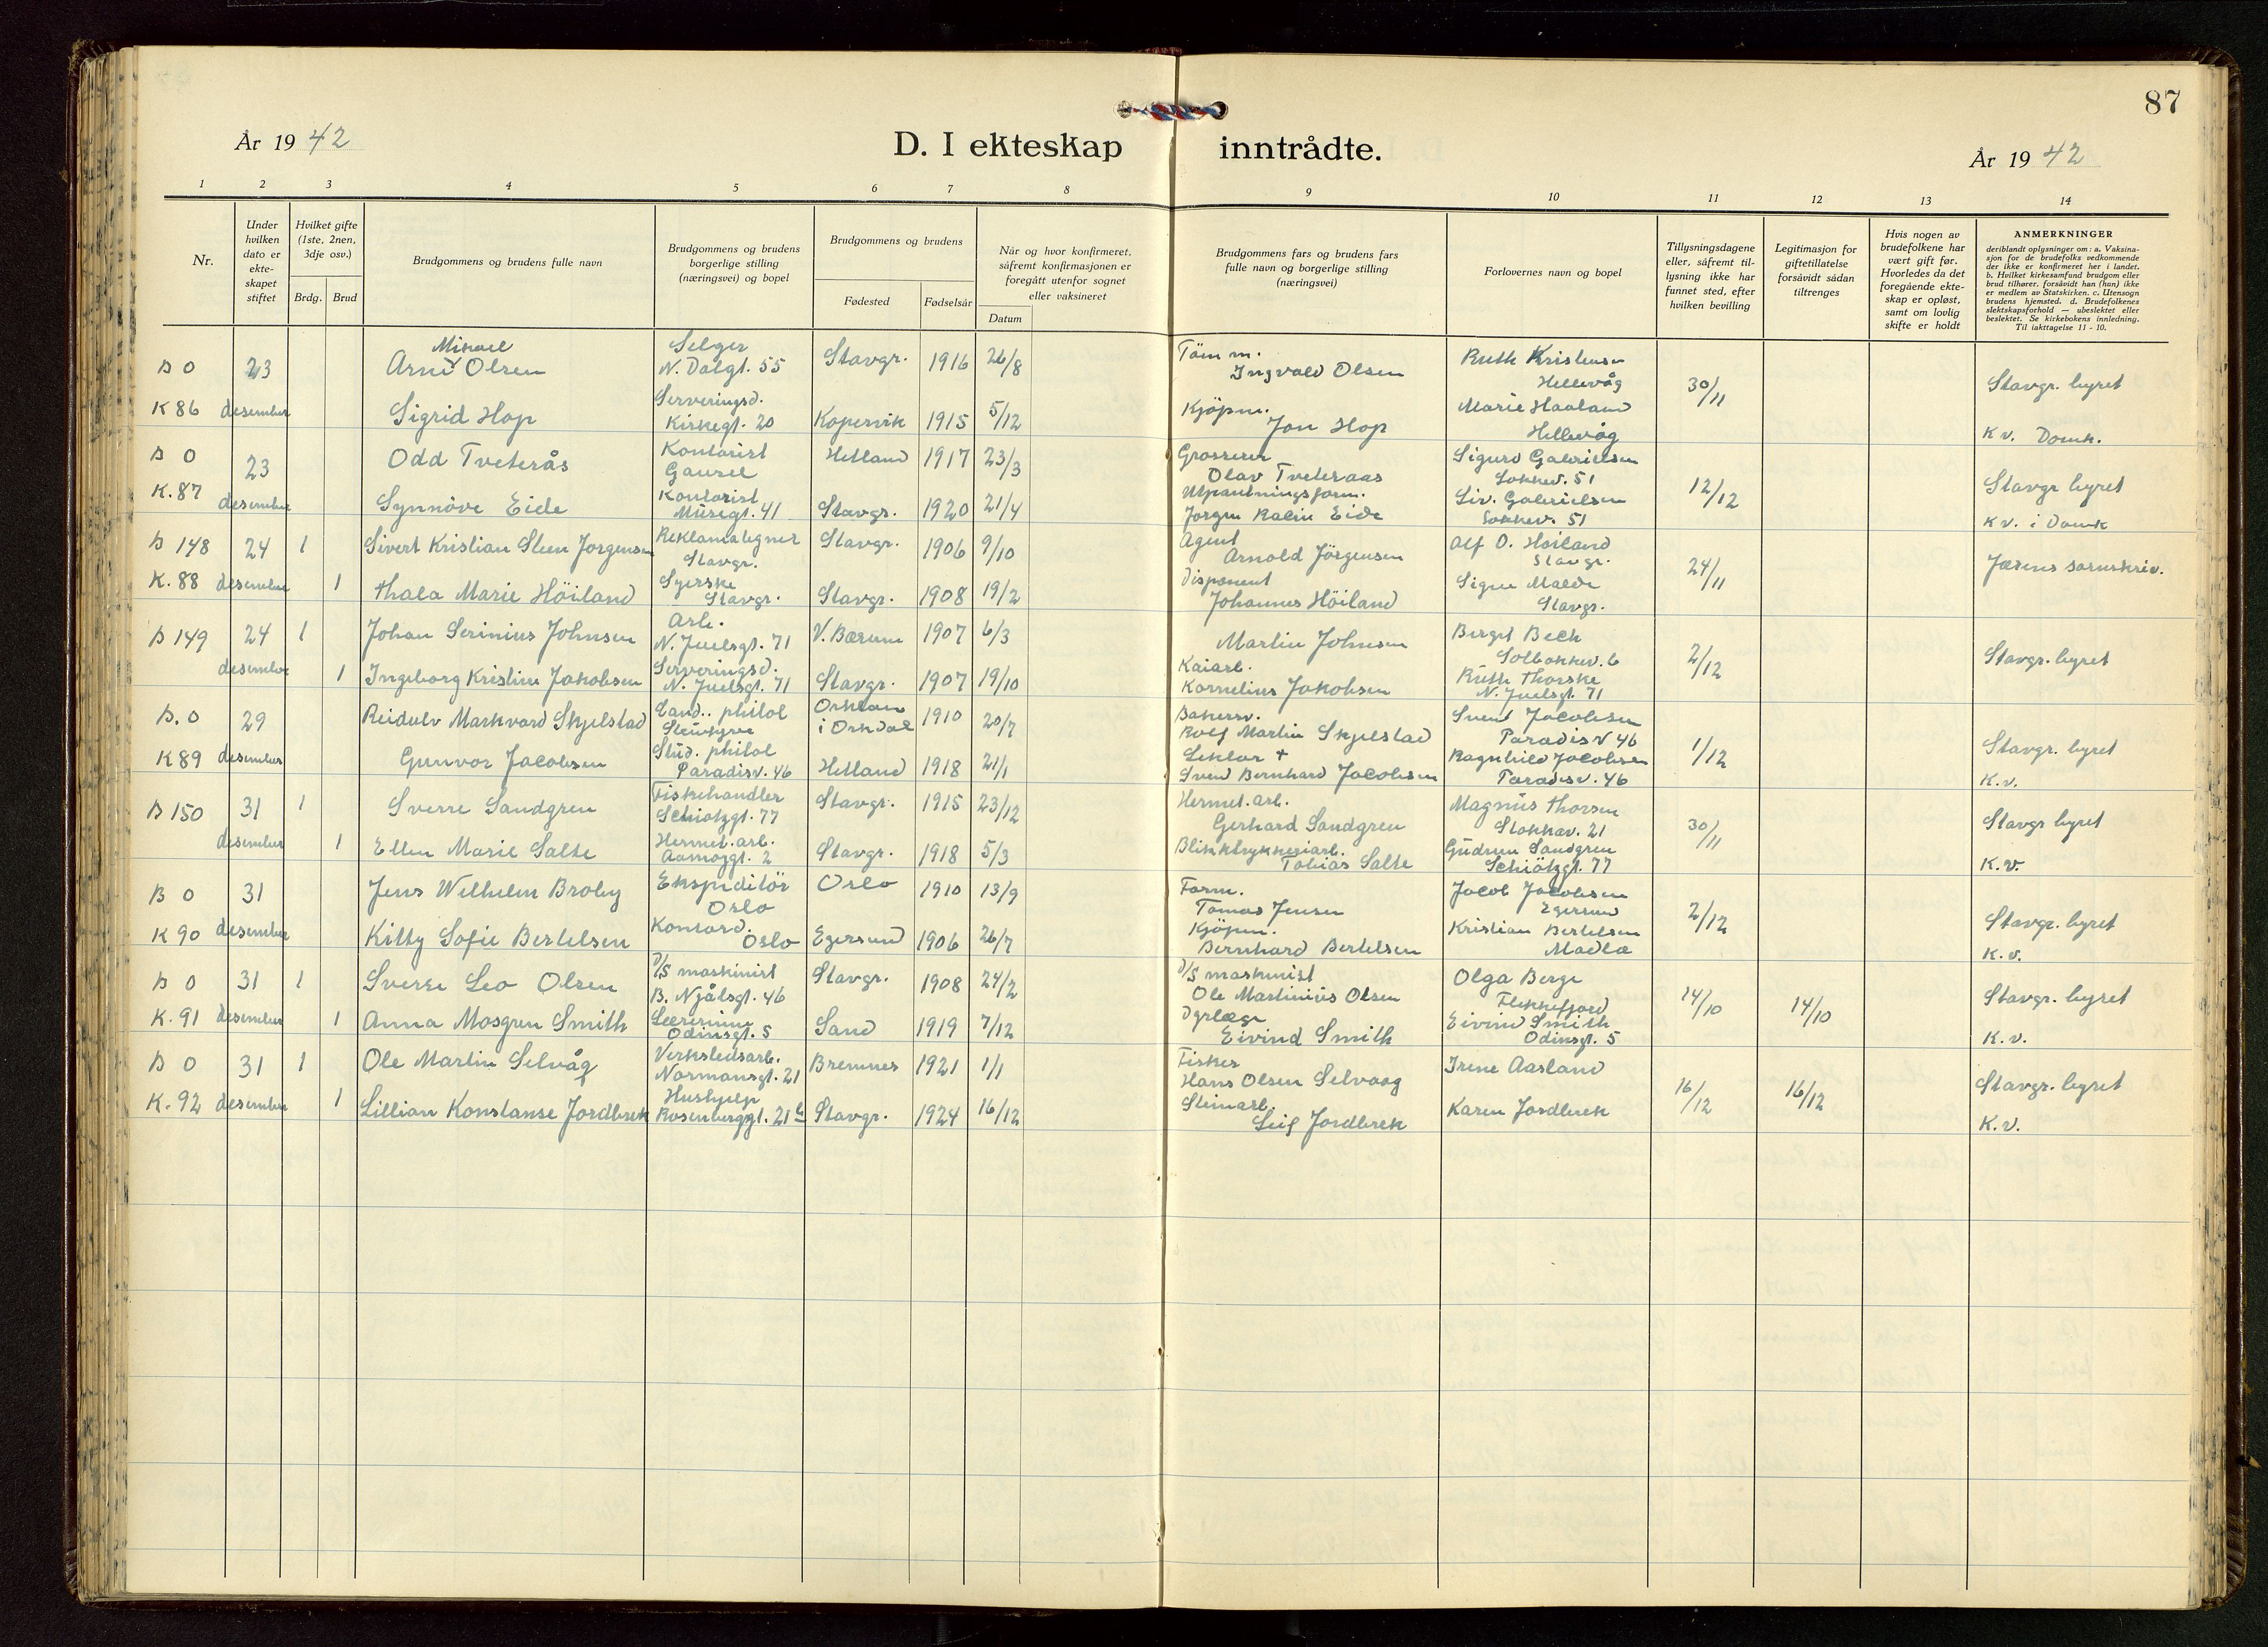 87
År 1942
D. I ekteskap inntrådte.
År 1942
1 2 3 4 5 6 7 8 9 10 11 12 13 14
Nr.
Under hvilken dato er ekteskapet stiftet
Hvilket gifte (1ste, 2nen, 3dje osv.)
Brdg. Brud
Brudgommens og brudens fulle navn
Brudgommens og brudens borgerlige stilling (næringsvei) og bopel
Brudgommens og brudens
Fødested Fødselsår
Når og hvor konfirmeret, såfremt konfirmasjonen er foregått utenfor sognet eller vaksineret
Datum
Brudgommens fars og brudens fars fulle navn og borgerlige stilling (næringsvei)
Forlovernes navn og bopel
Tillysningsdagene eller, såfremt tillysning ikke har funnet sted, efter hvilken bevilling
Legitimasjon for giftetillatelse forsåvidt sådan tiltrenges
Hvis nogen av brudefolkene har vært gift før. Hvorledes da det foregående ekteskap er opløst, samt om lovlig skifte er holdt
ANMERKNINGER
deriblandt oplysninger om: a. Vaksinasjon for de brudefolks vedkommende der ikke er konfirmeret her i landet. b. Hvilket kirkesamfund brudgom eller brud tilhører, forsåvidt han (hun) ikke er medlem av Statskirken. c. Utensogn brudens hjemsted. d. Brudefolkenes slektskapsforhold — ubeslektet eller beslektet. Se kirkebokens innledning. Til iakttagelse 11 - 10.
B 0 23 Arne Mikael Olsen Selger N. Dalgt. 55 Stavgr. 1916 26/8 Töm m. Ingvald Olsen Ruth Kristensen Hellevåg 30/11 Stavgr. byret
K 86 desember Sigrid Hop Serveringsd. Kirkegt. 20 Kopervik 1915 5/12 Kjöpm. Jon Hop Marie Haaland Hellevåg K v. Domk.
B 0 23 Odd Tveterås Kontorist Gausel Hetland 1917 23/3 Grosserer Olav Tveteraas Sigurd Gabrielsen Sokkev. 51 12/12 Stavgr byret
K. 87 desember Synnöve Eide Kontorist Musegt. 41 Stavgr. 1920 21/4 Utpantningsform. Jörgen Eide Liv. Gabrielsen Sokkev. 51 K v. i Domk
B 148 24 1 Sivert Kristian Steen Jorgensen Reklametegner Stavgr. Stavgr. 1906 9/10 Agent Arnold Jörgensen Alf O. Höiland Stavgr. 24/11 Jærens sornskriv.
K. 88 desember 1 Thala Marie Höiland Syerske Stavgr. Stavgr. 1908 19/2 Disponent Johannes Höiland Signe Malde Stavgr.
B 149 24 1 Johan Serinius Johnsen Arb. N. Juelsgt. 71 V. Bærum 1907 6/3 Martin Johnsen Berget Bech Solbakkev. 6 2/12 Stavgr. byret
desember 1 Ingeborg Kristine Jakobsen Serveringsd. N. Juelsgt. 71 Stavgr. 1907 19/10 Kaiarb. Kornelius Jakobsen Ruth Thorske N. Juelsgt. 71
B. 0 29 Reidulv Markvard Skjelstad Cand. philol Steinkjær i Orkdal 1910 20/7 Bakersv. Rolf Martin Skjelstad Svend Jacobsen Paradisv 46 1/12 Stavgr. byret
K 89 desember Gunvor Jacobsen Stud. philol Paradisv. 46 Hetland 1918 21/1 Lektor + Svend Bernhard Jacobsen Ragnhild Jacobsen Paradisv. 46 K. v.
B 150 31 1 Sverre Sandgren Fiskehandler Schiötzgt. 77 Stavgr. 1915 23/12 Hermet. arb. Gerhard Sandgren Magnus Thorsen Stokkav. 21 30/11 Stavgr byret
desember 1 Ellen Marie Salte Hermet. arb. Aamozgt. 2 Stavgr. 1918 5/3 Blikktrykkeriarb. Tobias Salte Gudrun Sandgren Schiötzgt. 77 K. v.
B 0 31 Jens Wilhelm Broby Ekspeditör Oslo Oslo 1910 13/9 Form. Tomas Jensen Jacob Jacobsen Egersund 2/12 Stavgr. byret
K 90 desember Kitty Sofie Bertelsen Kontord. Oslo Egersund 1906 26/7 Kjöpm. Bernhard Bertelsen Kristian Bertelsen Madla K. v.
B 0 31 1 Sverre Leo Olsen D/S maskinist B. Njålsgt. 46 Stavgr. 1908 24/2 D/S maskinist Ole Martinius Olsen Olga Berge Flekkefjord 14/10 14/10 Stavgr. byret
K. 91 desember 1 Anna Mosgren Smith Lærerinne Odinsgt. 5 Sand 1919 7/12 Dyrlæge Eivind Smith Eivind Smith Odinsgt. 5 K. v.
B 0 31 1 Ole Martin Selvåg Verkstedsarb. Normansgt. 21 Bremnes 1921 1/1 Fisker Hans Olsen Selvaag Irene Aasland 16/12 16/12 Stavgr. byret
K. 92 desember 1 Lillian Konstanse Jordbrek Hushjelp Rosenberggt. 21 b Stavgr. 1924 16/12 Steinarb. Leif Jordbrek Karen Jordbrek K. v.